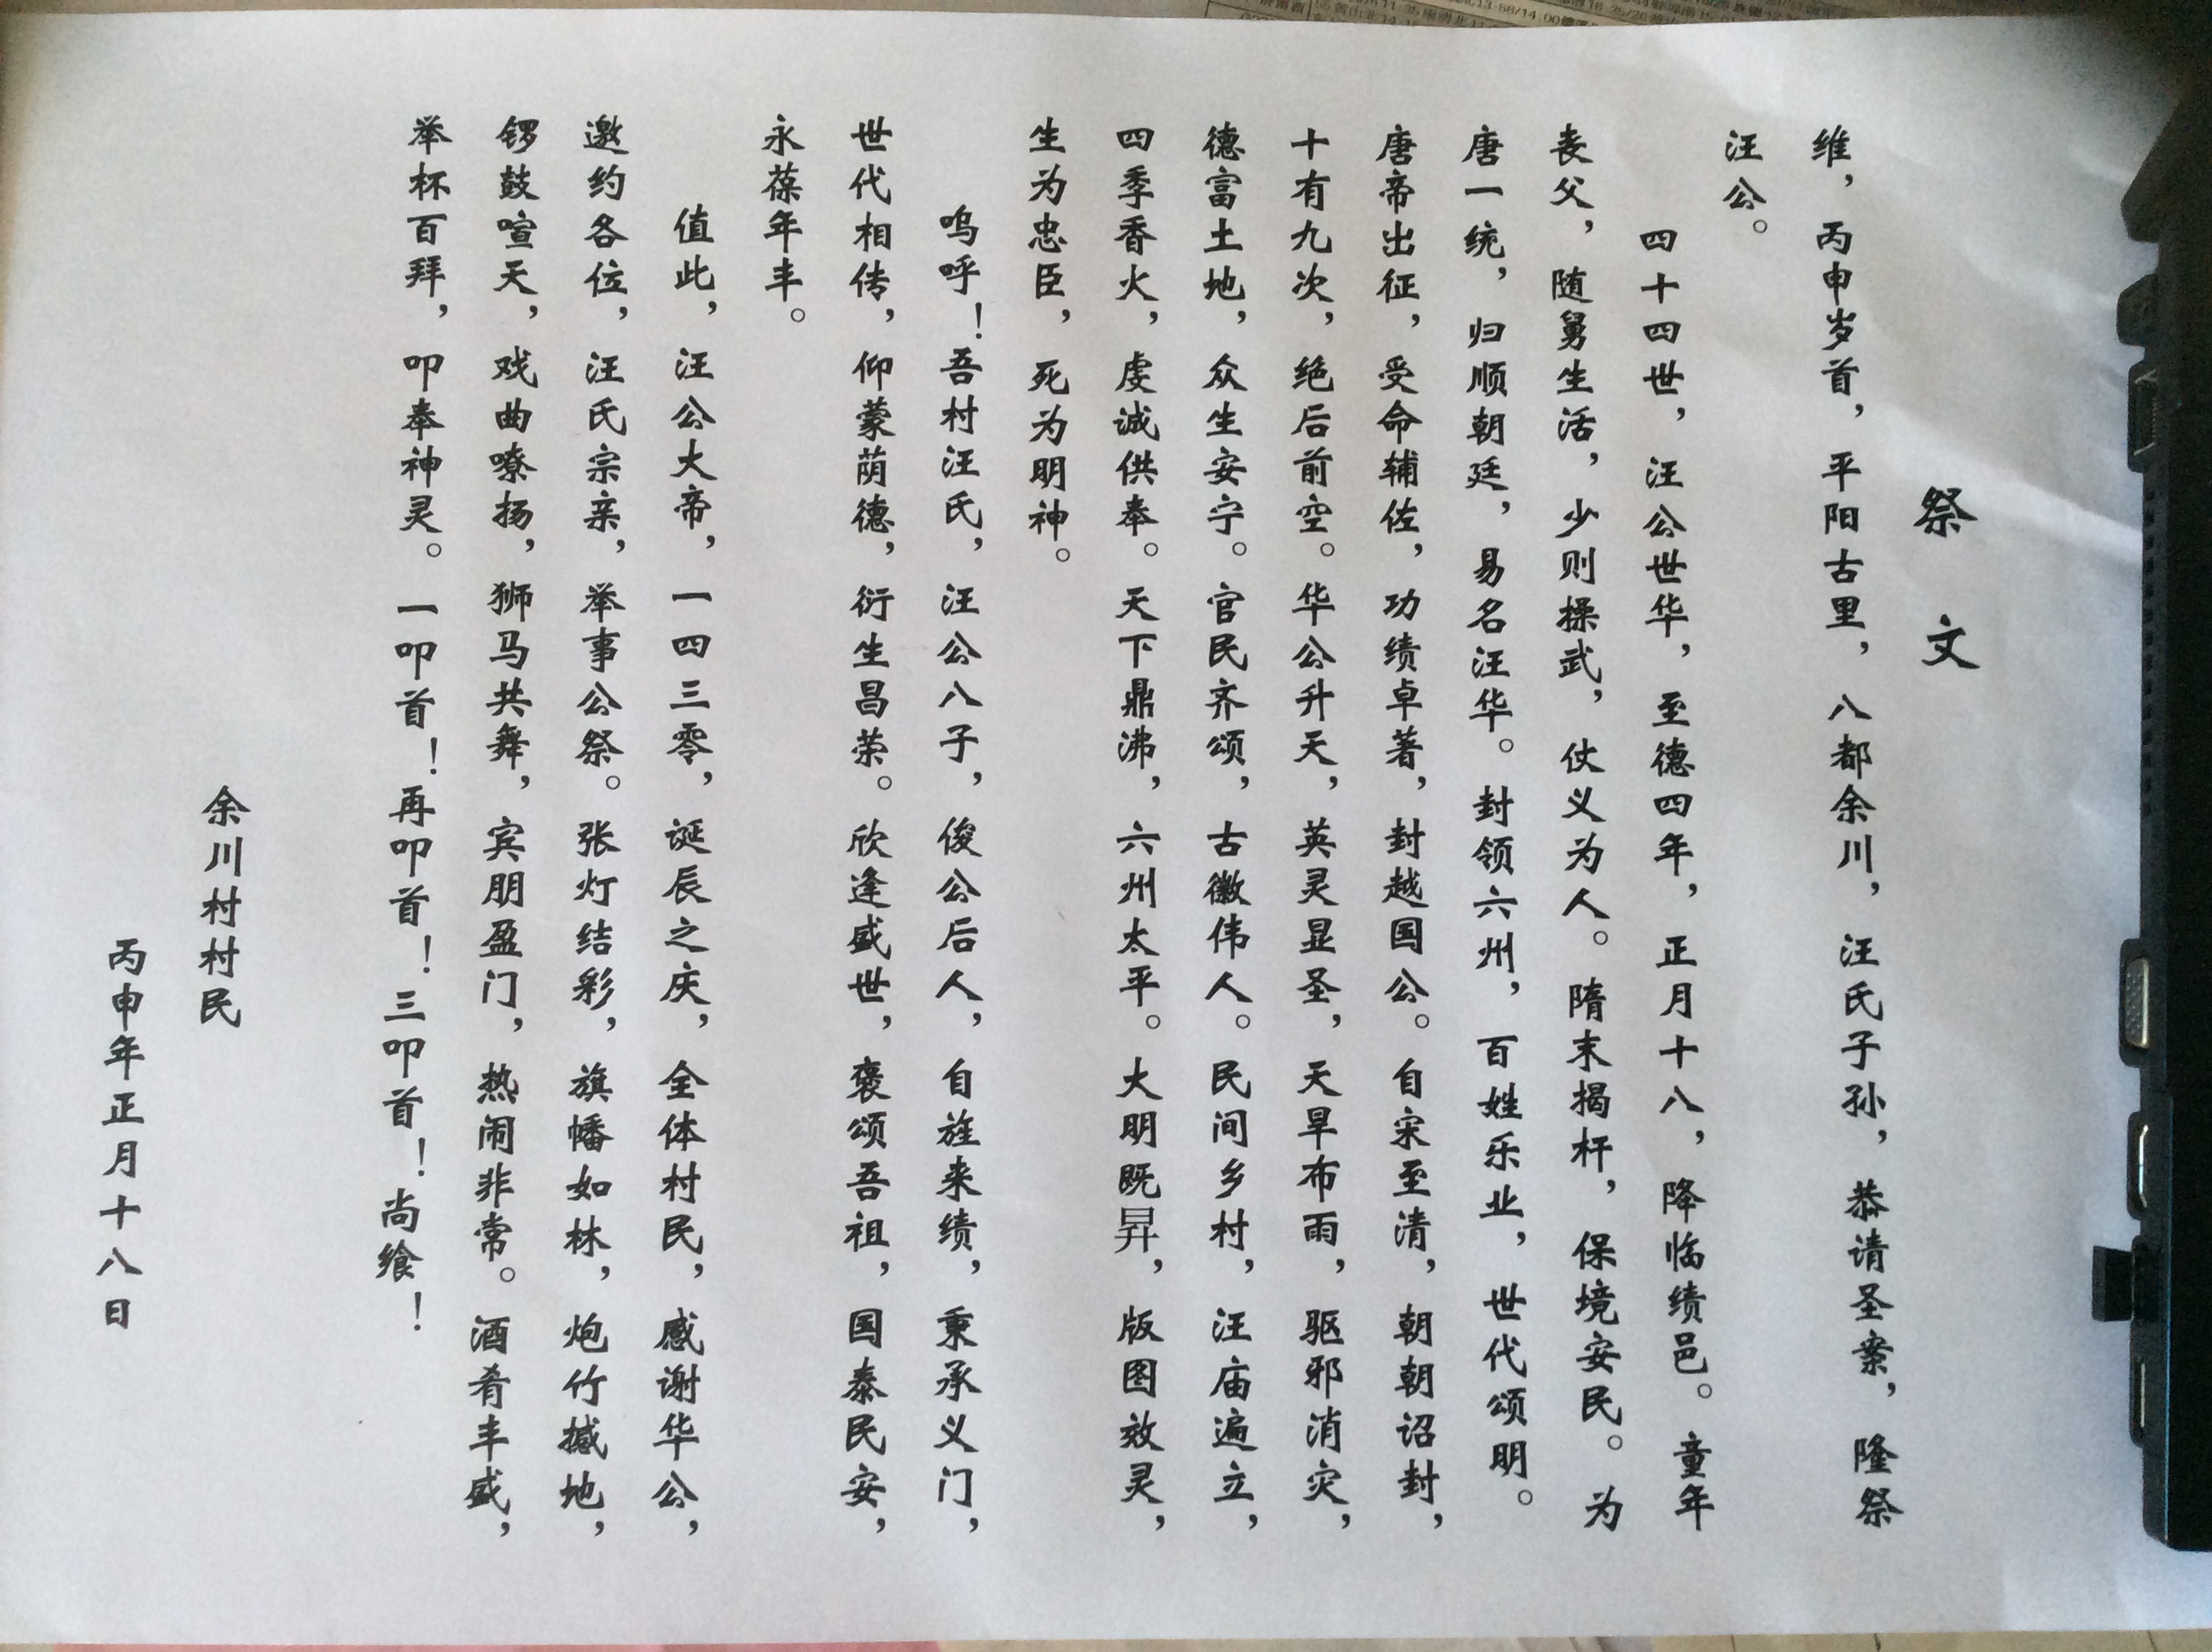 祭文
维，丙申岁首，平阳古里，八都余川，汪氏子孙，恭请圣案，隆祭
汪公。
四十四世，汪公世华，至德四年，正月十八，降临绩邑。童年
丧父，随舅生活，少则操武，仗义为人。隋末揭杆，保境安民。为
唐一统，归顺朝廷，易名汪华。封领六州，百姓乐业，世代颂明。
唐帝出征，受命辅佐，功绩卓著，封越国公。自宋至清，朝朝诏封，
十有九次，绝后前空。华公升天，英灵显圣，天旱布雨，驱邪消灾，
德富土地，众生安宁。官民齐颂，古徽伟人。民间乡村，汪庙遍立，
四季香火，虔诚供奉。天下鼎沸，六州太平。大明既昇，版图效灵，
生为忠臣，死为明神。
呜呼！吾村汪氏，汪公八子，俊公后人，自旌来绩，秉承义门，
世代相传，仰蒙荫德，衍生昌荣。欣逢盛世，褒颂吾祖，国泰民安，
永葆年丰。
值此，汪公大帝，一四三零，诞辰之庆，全体村民，感谢华公，
邀约各位，汪氏宗亲，举事公祭。张灯结彩，旗幡如林，炮竹撼地，
锣鼓喧天，戏曲嘹扬，狮马共舞，宾朋盈门，热闹非常。酒肴丰盛，
举杯百拜，叩奉神灵。一叩首！再叩首！三叩首！尚飨！
余川村村民
丙申年正月十八日